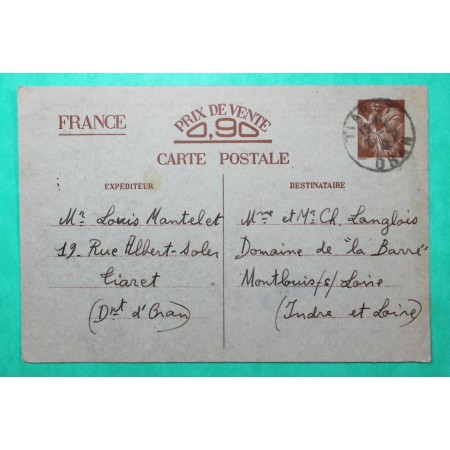 FRANCE
PRIX DE VENTE
0,90
CARTE POSTALE
EXPÉDITEUR
Mr Louis Mantelet
19, Rue Albert-Soler
Tiaret
(Dnt d'Oran)
DESTINATAIRE
Mme et Mr Ch. Langlois
Domaine de "la Barre"
Montlouis/s/ Loire
(Indre et Loire)
ORAN